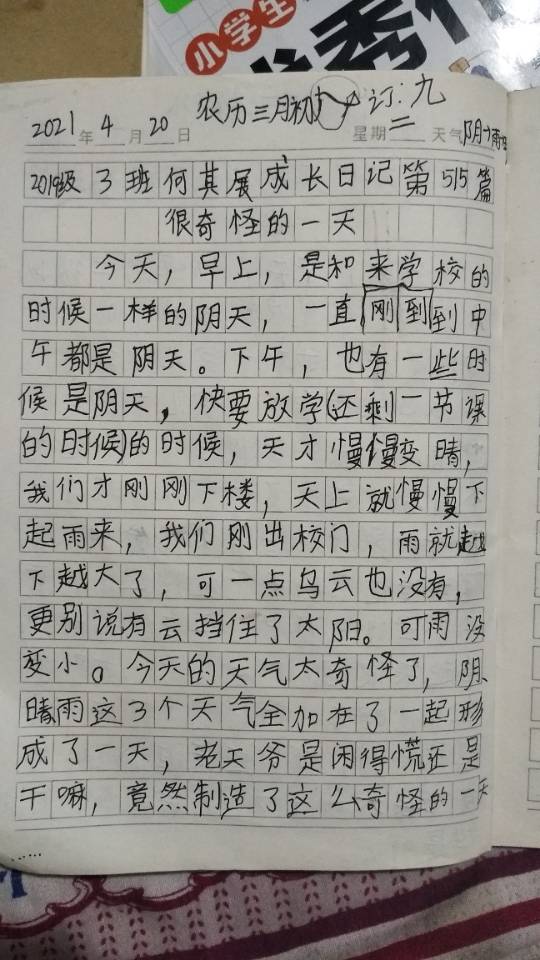 小学生
秀
农历三月初 订:九
2021年4月20日 星期二 天气阴+雨+晴
2019级3班何其展成长日记第515篇
很奇怪的一天
今天，早上，是和来学校的
时候一样的阴天，一直刚到到中
午都是阴天。下午，也有一些时
候是阴天，快要放学(还剩一节课
的时候)的时候，天才慢慢变晴，
我们才刚刚下楼，天上就慢慢下
起雨来，我们刚出校门，雨就越
下越大了，可一点乌云也没有，
更别说有云挡住了太阳。可雨没
变小。今天的天气太奇怪了，阴、
晴雨这3个天气全加在了一起形
成了一天，老天爷是闲得慌还是
干嘛，竟然制造了这么奇怪的一天
……